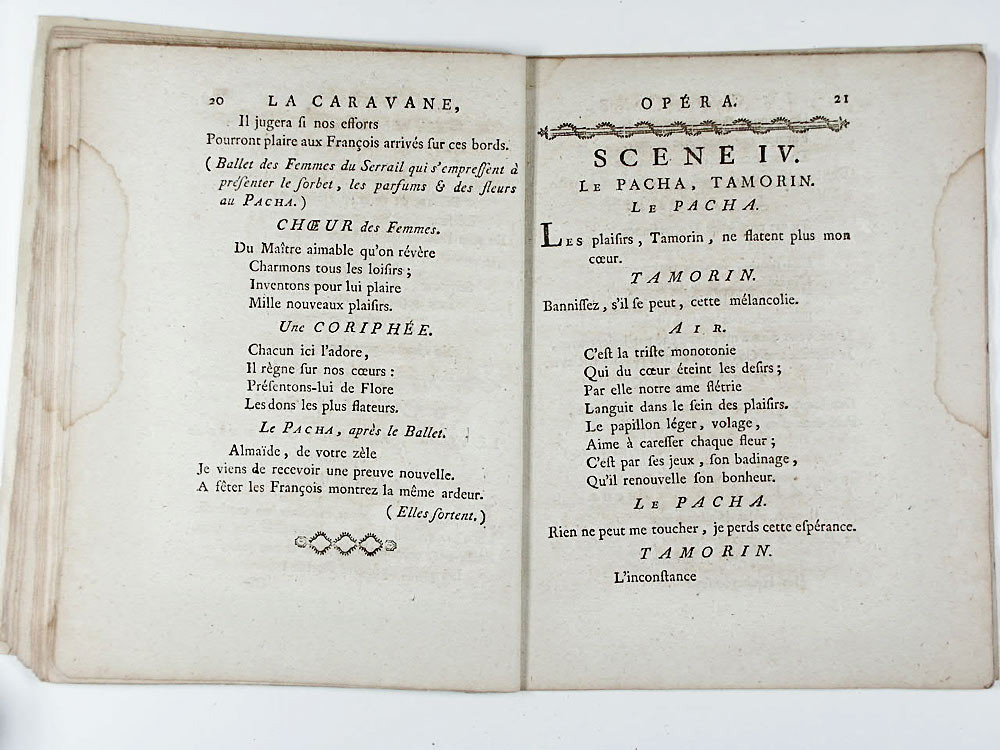 20 LA CARAVANE,
Il jugera ſi nos efforts
Pourront plaire aux François arrivés ſur ces bords.
( Ballet des Femmes du Serrail qui s'empreſſent à
préſenter le ſorbet, les parfums & des fleurs
au PACHA. )
CHŒUR des Femmes.
Du Maître aimable qu'on révère
Charmons tous les loiſirs ;
Inventons pour lui plaire
Mille nouveaux plaiſirs.
Une CORIPHÉE.
Chacun ici l'adore,
Il règne ſur nos cœurs :
Préſentons-lui de Flore
Les dons les plus flateurs.
Le PACHA, après le Ballet.
Almaïde, de votre zèle
Je viens de recevoir une preuve nouvelle.
A fêter les François montrez la même ardeur.
( Elles ſortent. )
OPÉRA. 21
SCENE IV.
LE PACHA, TAMORIN.
LE PACHA.
LES plaiſirs, Tamorin, ne flatent plus mon
cœur.
TAMORIN.
Banniſſez, s'il ſe peut, cette mélancolie.
AIR.
C'eſt la triſte monotonie
Qui du cœur éteint les deſirs ;
Par elle notre ame flétrie
Languit dans le ſein des plaiſirs.
Le papillon léger, volage,
Aime à careſſer chaque fleur ;
C'eſt par ſes jeux, ſon badinage,
Qu'il renouvelle ſon bonheur.
LE PACHA.
Rien ne peut me toucher, je perds cette eſpérance.
TAMORIN.
L'inconſtance